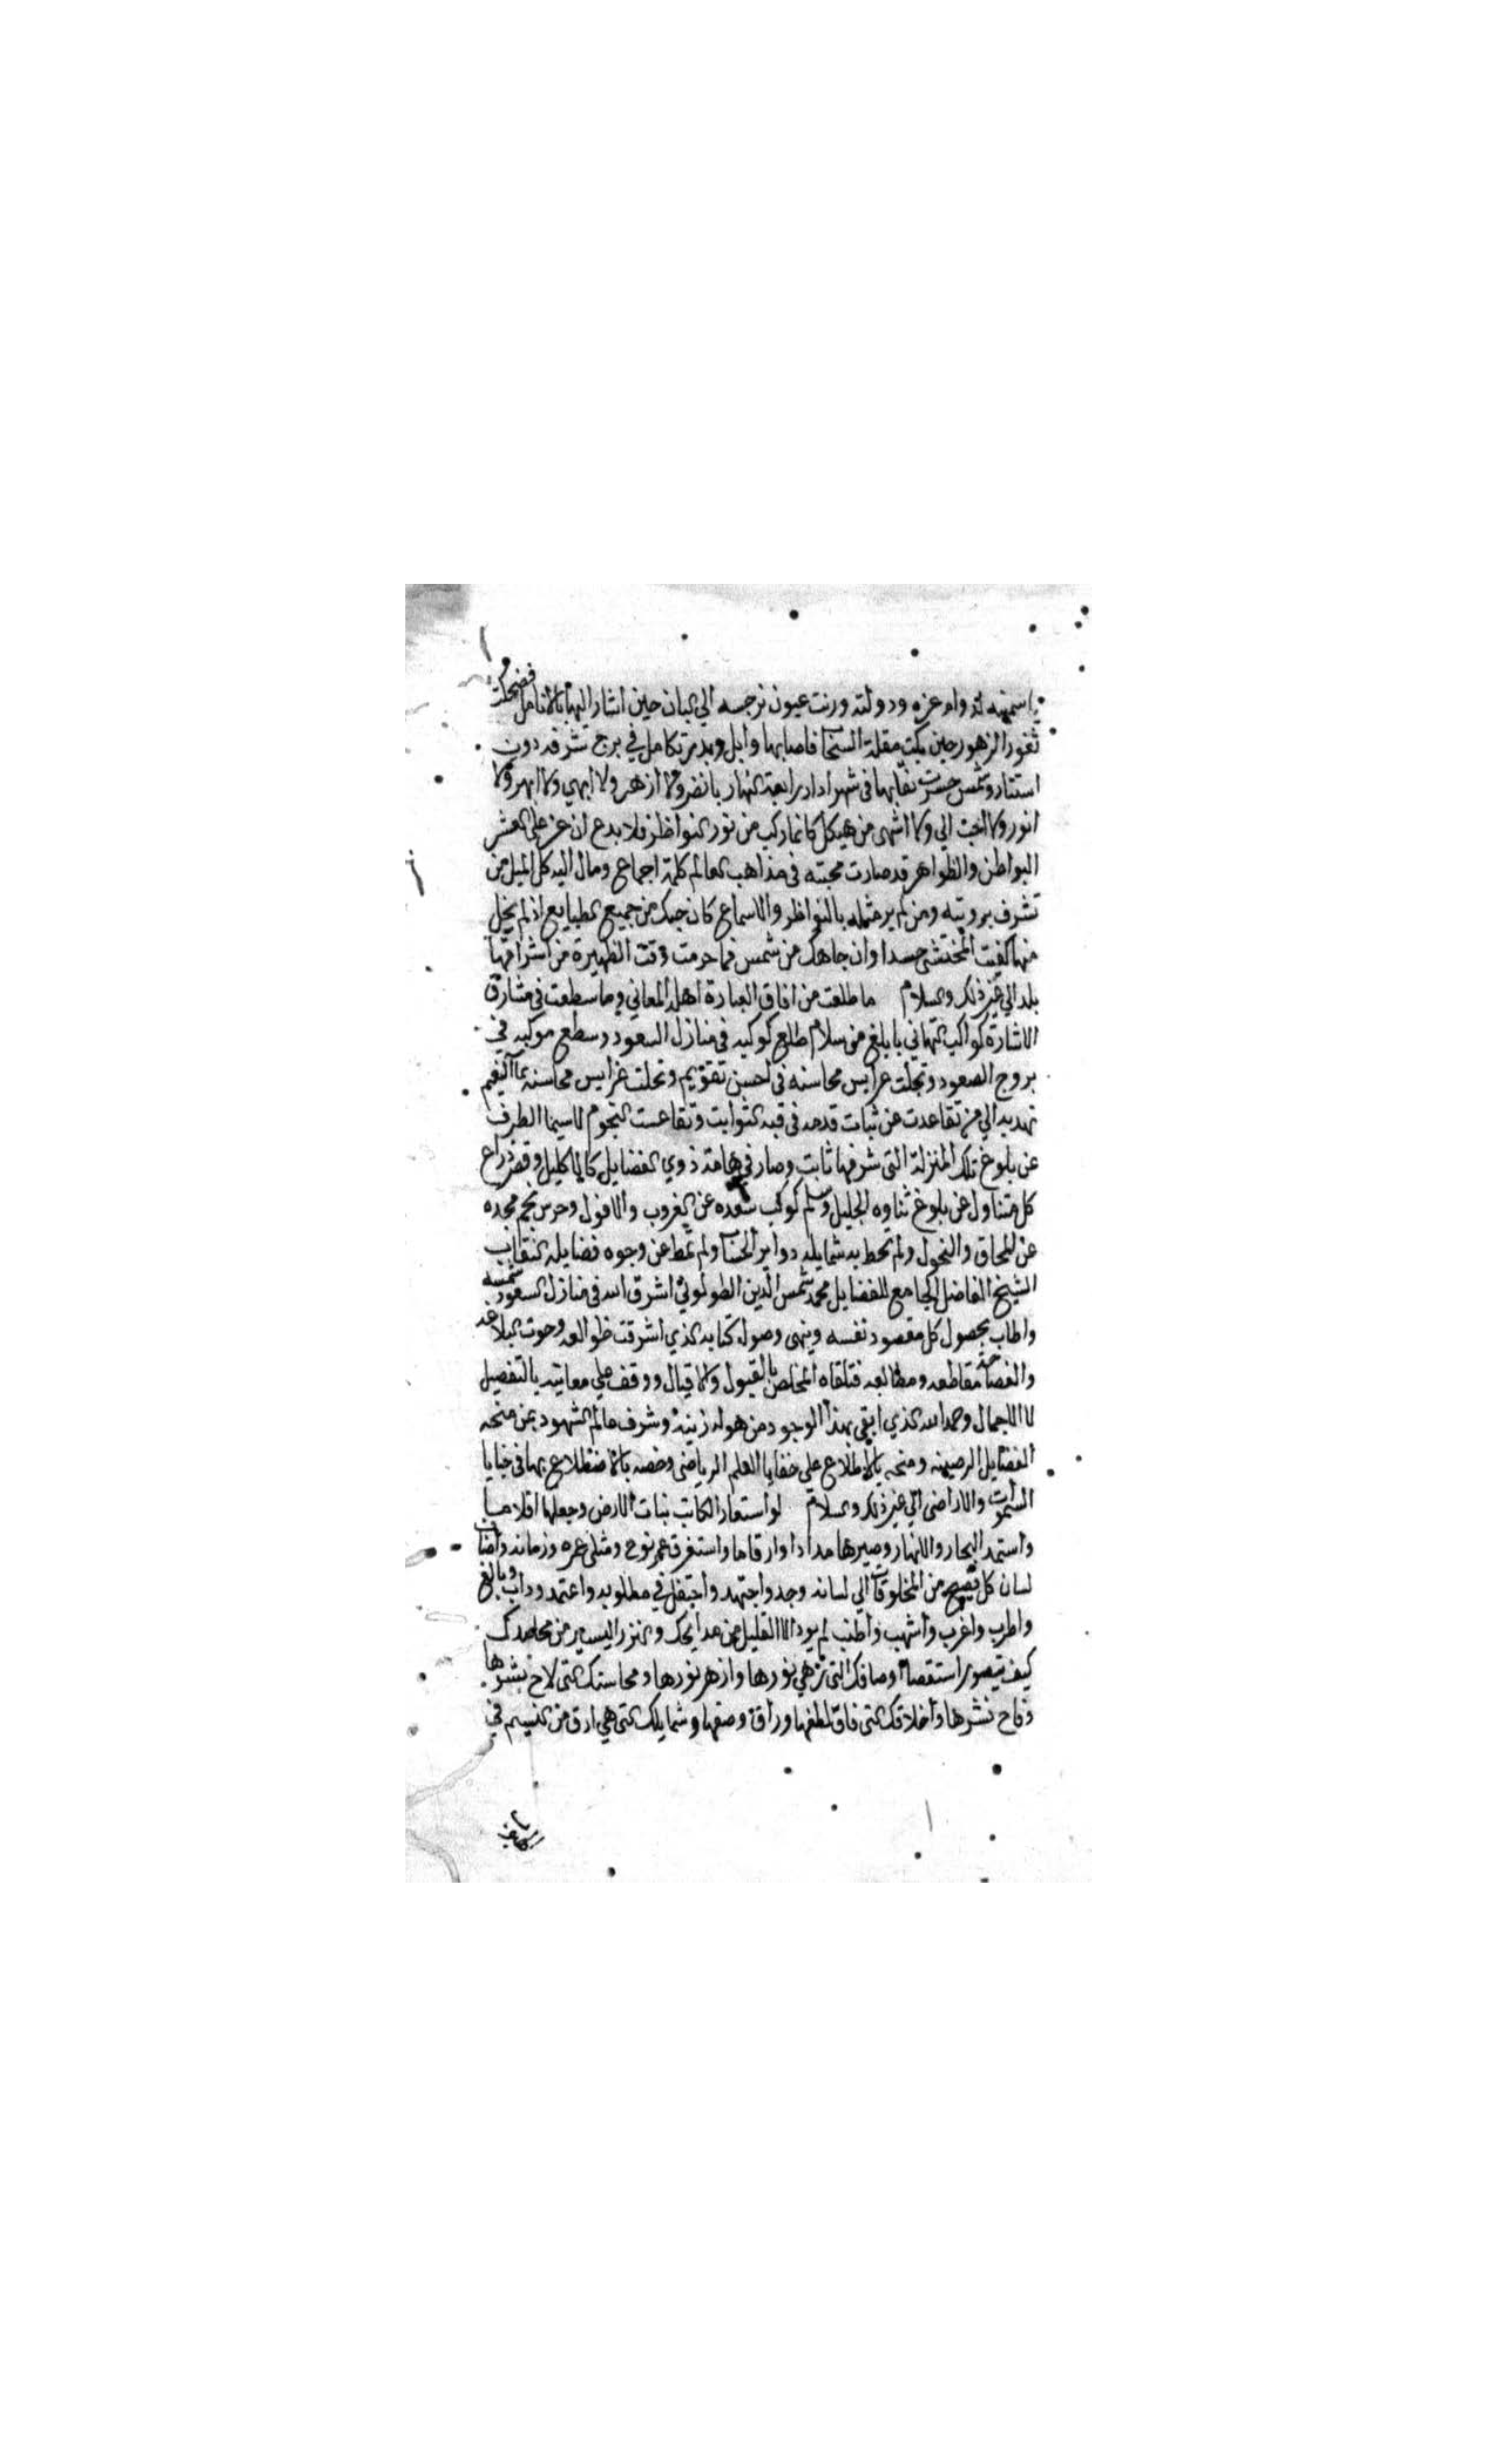 ياسمينه لدوام عزه ودولته ورنت عيون نرجسه الي البان حين اشار اليها بالانامل فضحكت
ثغور الزهور حين بكت مقلة السحاب فاصابها وابل وبدر تكامل في برج شرفه دون
استتار وشمس حسرت نقابها في شهر اذار رابعة النهار بانضر ولا ازهر ولا ابهي ولا ابهر ولا
انور ولا احب الي ولا اشهى من هيكل كانما ركب من نور النواظر فلا بدع ان عز على
البواطن والظواهر قد صارت محبته في مذاهب العالم كلمة اجماع ومال اليه كل الميل من
تشرف برويته ومن لم ير مثله بالنواظر والاسماع كان حبك من جميع الطبايع اذ لم يخل
منها كفيت المختشى حسدا وان جاهك من شمس فما حرمت وقت الظهيرة من اشراقها
بلد الي غير ذلك والسلام ما طلعت من افاق العبارة اهلة المعاني وما سطعت في مشارق
الاشارة كواكب التهاني بابلغ من سلام طلع كوكبه في منازل السعود وسطع موكبه في
بروج الصعود وتجلت عرايس محاسنه في احسن تقويم وتحلت غرايس محاسنه
نهديه الي من تقاعدت عن ثبات قدمه في قبة الثوابت وتقاعست النجوم لاسيما الطرف
عن بلوغ تلك المنزلة التي شرفها ثابت وصار في هامة ذوي الفضايل كالاكليل وقصر ذراع
كل متناول عن بلوغ ثناوه الجليل وسلم كوكب سعده عن الغروب والافول وحرس نجم مجده
عن المحاق والنحول ولم تحط به شمايله دواير الحساب ولم تمط عن وجوه فضايله النقاب
الشيخ الفاضل الجامع للفضايل محمد شمس الدين الطولوني اشرق الله في منازل السعود شمسه
واطاب بحصول كل مقصود نفسه وينهى وصول كتابه الذي اشرقت طوالعه وحوت البلاغة
والفصاحة مقاطعه ومطالعه فتلقاه المخلص بالقبول والاقبال ووقف علي معانيه بالتفصيل
لا الاجمال وحمد الله الذي ابقى بهذا الوجود من هو له زينة وشرف عالم الشهود بمن منحه
الفضايل الرصينه ومنحه بالاطلاع علي خفايا العلم الرياضي وخصه بالاضطلاع بما في خبايا
السموات والاراضي الي غير ذلك والسلام لو استعار الكاتب نبات الارض وجعلها اقلاما
واستمد البحار والانهار وصيرها مدادا وارقاما واستغرق عمر نوح ومثلى عمره وزمانه واضاف
لسان كل فصيح من المخلوقات الي لسانه وجد واجتهد واحتفل في مطلوبه واعتمد وداب وبالغ
واطرب واغرب واسهب واطنب لم يود الا القليل من مدايحك والنزر اليسير من محامدك
كيف يتصور استقصا اوصافك التى زهي نورها وازهر نورها ومحاسنك التي لاح بشرها
وفاح نشرها واخلاقك التى فاق لطفها وراق وصفها وشمايلك التى هي ارق من النسيم في